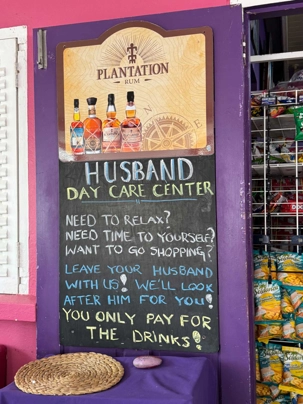 PLANTATION
RUM
HUSBAND
DAY CARE CENTER
NEED TO RELAX?
NEED TIME TO YOURSELF?
WANT TO GO SHOPPING?
LEAVE YOUR HUSBAND
WITH US! WE'LL LOOK
AFTER HIM FOR YOU!
YOU ONLY PAY FOR
THE DRINKS!